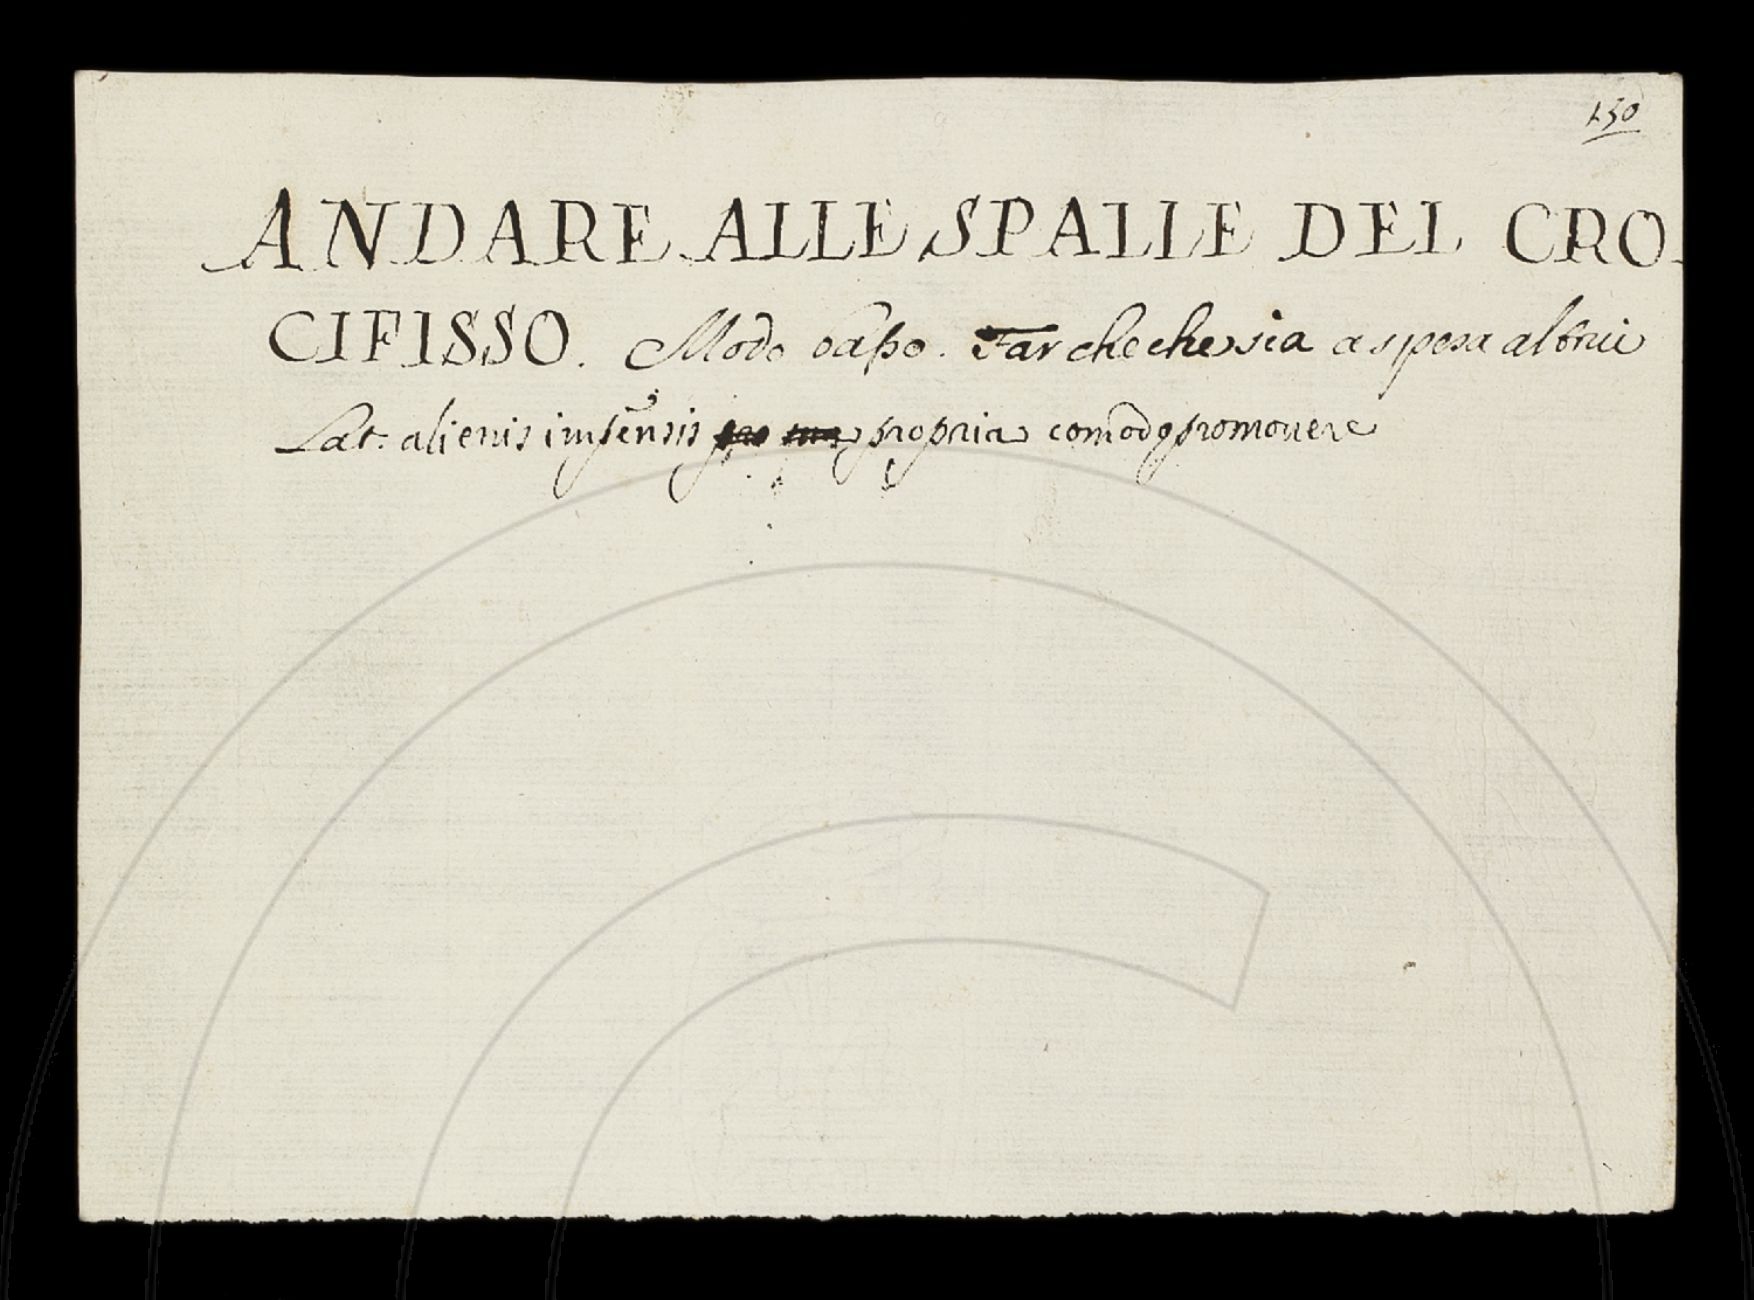 150
ANDARE ALLE SPALLE DEL CRO-
CIFISSO. Modo basso. Far checchesia a spesa altrui
Lat. alienis impensis propria com̃oda promovere